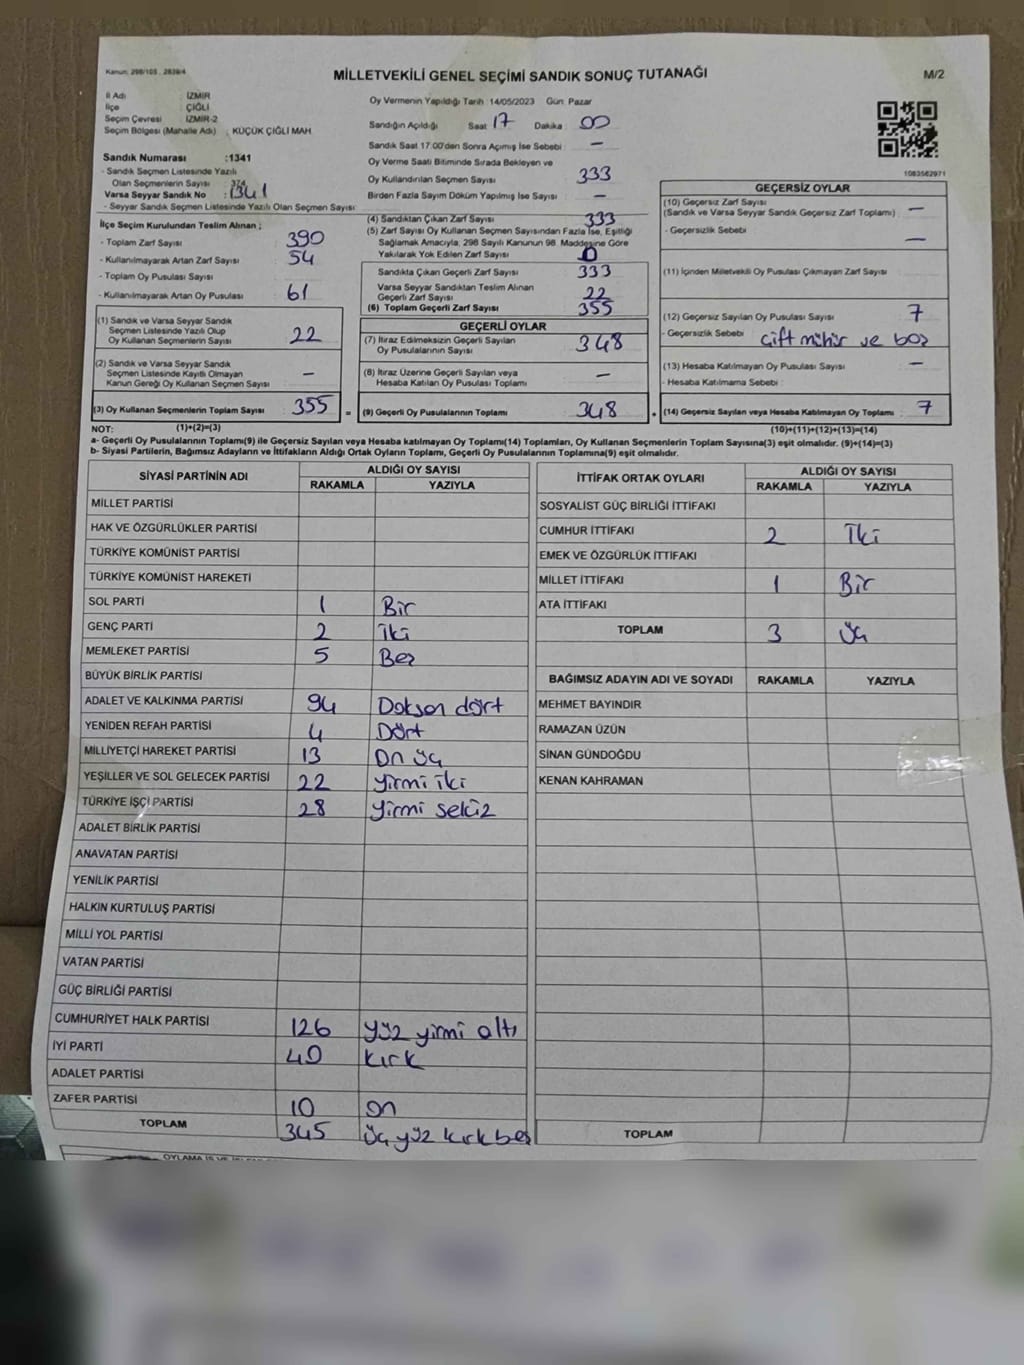 Kanun: 298/105 , 2839/4
MİLLETVEKİLİ GENEL SEÇİMİ SANDIK SONUÇ TUTANAĞI
M/2
İl Adı İZMİR
İlçe ÇİĞLİ
Seçim Çevresi İZMİR-2
Seçim Bölgesi (Mahalle Adı) : KÜÇÜK ÇİĞLİ MAH.
Oy Vermenin Yapıldığı Tarih :14/05/2023 Gün: Pazar
Sandığın Açıldığı Saat 17 Dakika : 00
Sandık Saat 17:00'den Sonra Açılmış İse Sebebi : -
Oy Verme Saati Bitiminde Sırada Bekleyen ve
Oy Kullandırılan Seçmen Sayısı 333
Birden Fazla Sayım Döküm Yapılmış İse Sayısı : -
1083562971
Sandık Numarası :1341
- Sandık Seçmen Listesinde Yazılı
Olan Seçmenlerin Sayısı : 374
Varsa Seyyar Sandık No : 1341
- Seyyar Sandık Seçmen Listesinde Yazılı Olan Seçmen Sayısı:
İlçe Seçim Kurulundan Teslim Alınan ;
- Toplam Zarf Sayısı : 390
- Kullanılmayarak Artan Zarf Sayısı : 54
- Toplam Oy Pusulası Sayısı :
- Kullanılmayarak Artan Oy Pusulası : 61
(1) Sandık ve Varsa Seyyar Sandık
Seçmen Listesinde Yazılı Olup
Oy Kullanan Seçmenlerin Sayısı : 22
(2) Sandık ve Varsa Seyyar Sandık
Seçmen Listesinde Kayıtlı Olmayan
Kanun Gereği Oy Kullanan Seçmen Sayısı : -
(3) Oy Kullanan Seçmenlerin Toplam Sayısı : 355 =
(4) Sandıktan Çıkan Zarf Sayısı : 333
(5) Zarf Sayısı Oy Kullanan Seçmen Sayısından Fazla İse, Eşitliği
Sağlamak Amacıyla, 298 Sayılı Kanunun 98. Maddesine Göre
Yakılarak Yok Edilen Zarf Sayısı : 0
Sandıkta Çıkan Geçerli Zarf Sayısı : 333
Varsa Seyyar Sandıktan Teslim Alınan
Geçerli Zarf Sayısı : 22
(6) Toplam Geçerli Zarf Sayısı : 355
GEÇERLİ OYLAR
(7) İtiraz Edilmeksizin Geçerli Sayılan
Oy Pusulalarının Sayısı : 348
(8) İtiraz Üzerine Geçerli Sayılan veya
Hesaba Katılan Oy Pusulası Toplamı : -
(9) Geçerli Oy Pusulalarının Toplamı : 348 +
GEÇERSİZ OYLAR
(10) Geçersiz Zarf Sayısı
(Sandık ve Varsa Seyyar Sandık Geçersiz Zarf Toplamı) : -
- Geçersizlik Sebebi : -
(11) İçinden Milletvekili Oy Pusulası Çıkmayan Zarf Sayısı :
(12) Geçersiz Sayılan Oy Pusulası Sayısı : 7
- Geçersizlik Sebebi : Çift mühür ve boş
(13) Hesaba Katılmayan Oy Pusulası Sayısı : -
- Hesaba Katılmama Sebebi :
(14) Geçersiz Sayılan veya Hesaba Katılmayan Oy Toplamı : 7
NOT: (1)+(2)=(3)
(10)+(11)+(12)+(13)=(14)
a- Geçerli Oy Pusulalarının Toplamı(9) ile Geçersiz Sayılan veya Hesaba katılmayan Oy Toplamı(14) Toplamları, Oy Kullanan Seçmenlerin Toplam Sayısına(3) eşit olmalıdır. (9)+(14)=(3)
b- Siyasi Partilerin, Bağımsız Adayların ve İttifakların Aldığı Ortak Oyların Toplamı, Geçerli Oy Pusulalarının Toplamına(9) eşit olmalıdır.
SİYASİ PARTİNİN ADI ALDIĞI OY SAYISI
RAKAMLA YAZIYLA
MİLLET PARTİSİ
HAK VE ÖZGÜRLÜKLER PARTİSİ
TÜRKİYE KOMÜNİST PARTİSİ
TÜRKİYE KOMÜNİST HAREKETİ
SOL PARTİ 1 Bir
GENÇ PARTİ 2 İki
MEMLEKET PARTİSİ 5 Beş
BÜYÜK BİRLİK PARTİSİ
ADALET VE KALKINMA PARTİSİ 94 Doksan dört
YENİDEN REFAH PARTİSİ 4 Dört
MİLLİYETÇİ HAREKET PARTİSİ 13 On üç
YEŞİLLER VE SOL GELECEK PARTİSİ 22 yirmi iki
TÜRKİYE İŞÇİ PARTİSİ 28 yirmi sekiz
ADALET BİRLİK PARTİSİ
ANAVATAN PARTİSİ
YENİLİK PARTİSİ
HALKIN KURTULUŞ PARTİSİ
MİLLİ YOL PARTİSİ
VATAN PARTİSİ
GÜÇ BİRLİĞİ PARTİSİ
CUMHURİYET HALK PARTİSİ 126 yüz yirmi altı
İYİ PARTİ 40 kırk
ADALET PARTİSİ
ZAFER PARTİSİ 10 on
TOPLAM 345 üç yüz kırk beş
İTTİFAK ORTAK OYLARI ALDIĞI OY SAYISI
RAKAMLA YAZIYLA
SOSYALİST GÜÇ BİRLİĞİ İTTİFAKI
CUMHUR İTTİFAKI 2 İki
EMEK VE ÖZGÜRLÜK İTTİFAKI
MİLLET İTTİFAKI 1 Bir
ATA İTTİFAKI
TOPLAM 3 üç
BAĞIMSIZ ADAYIN ADI VE SOYADI RAKAMLA YAZIYLA
MEHMET BAYINDIR
RAMAZAN ÜZÜN
SİNAN GÜNDOĞDU
KENAN KAHRAMAN
TOPLAM